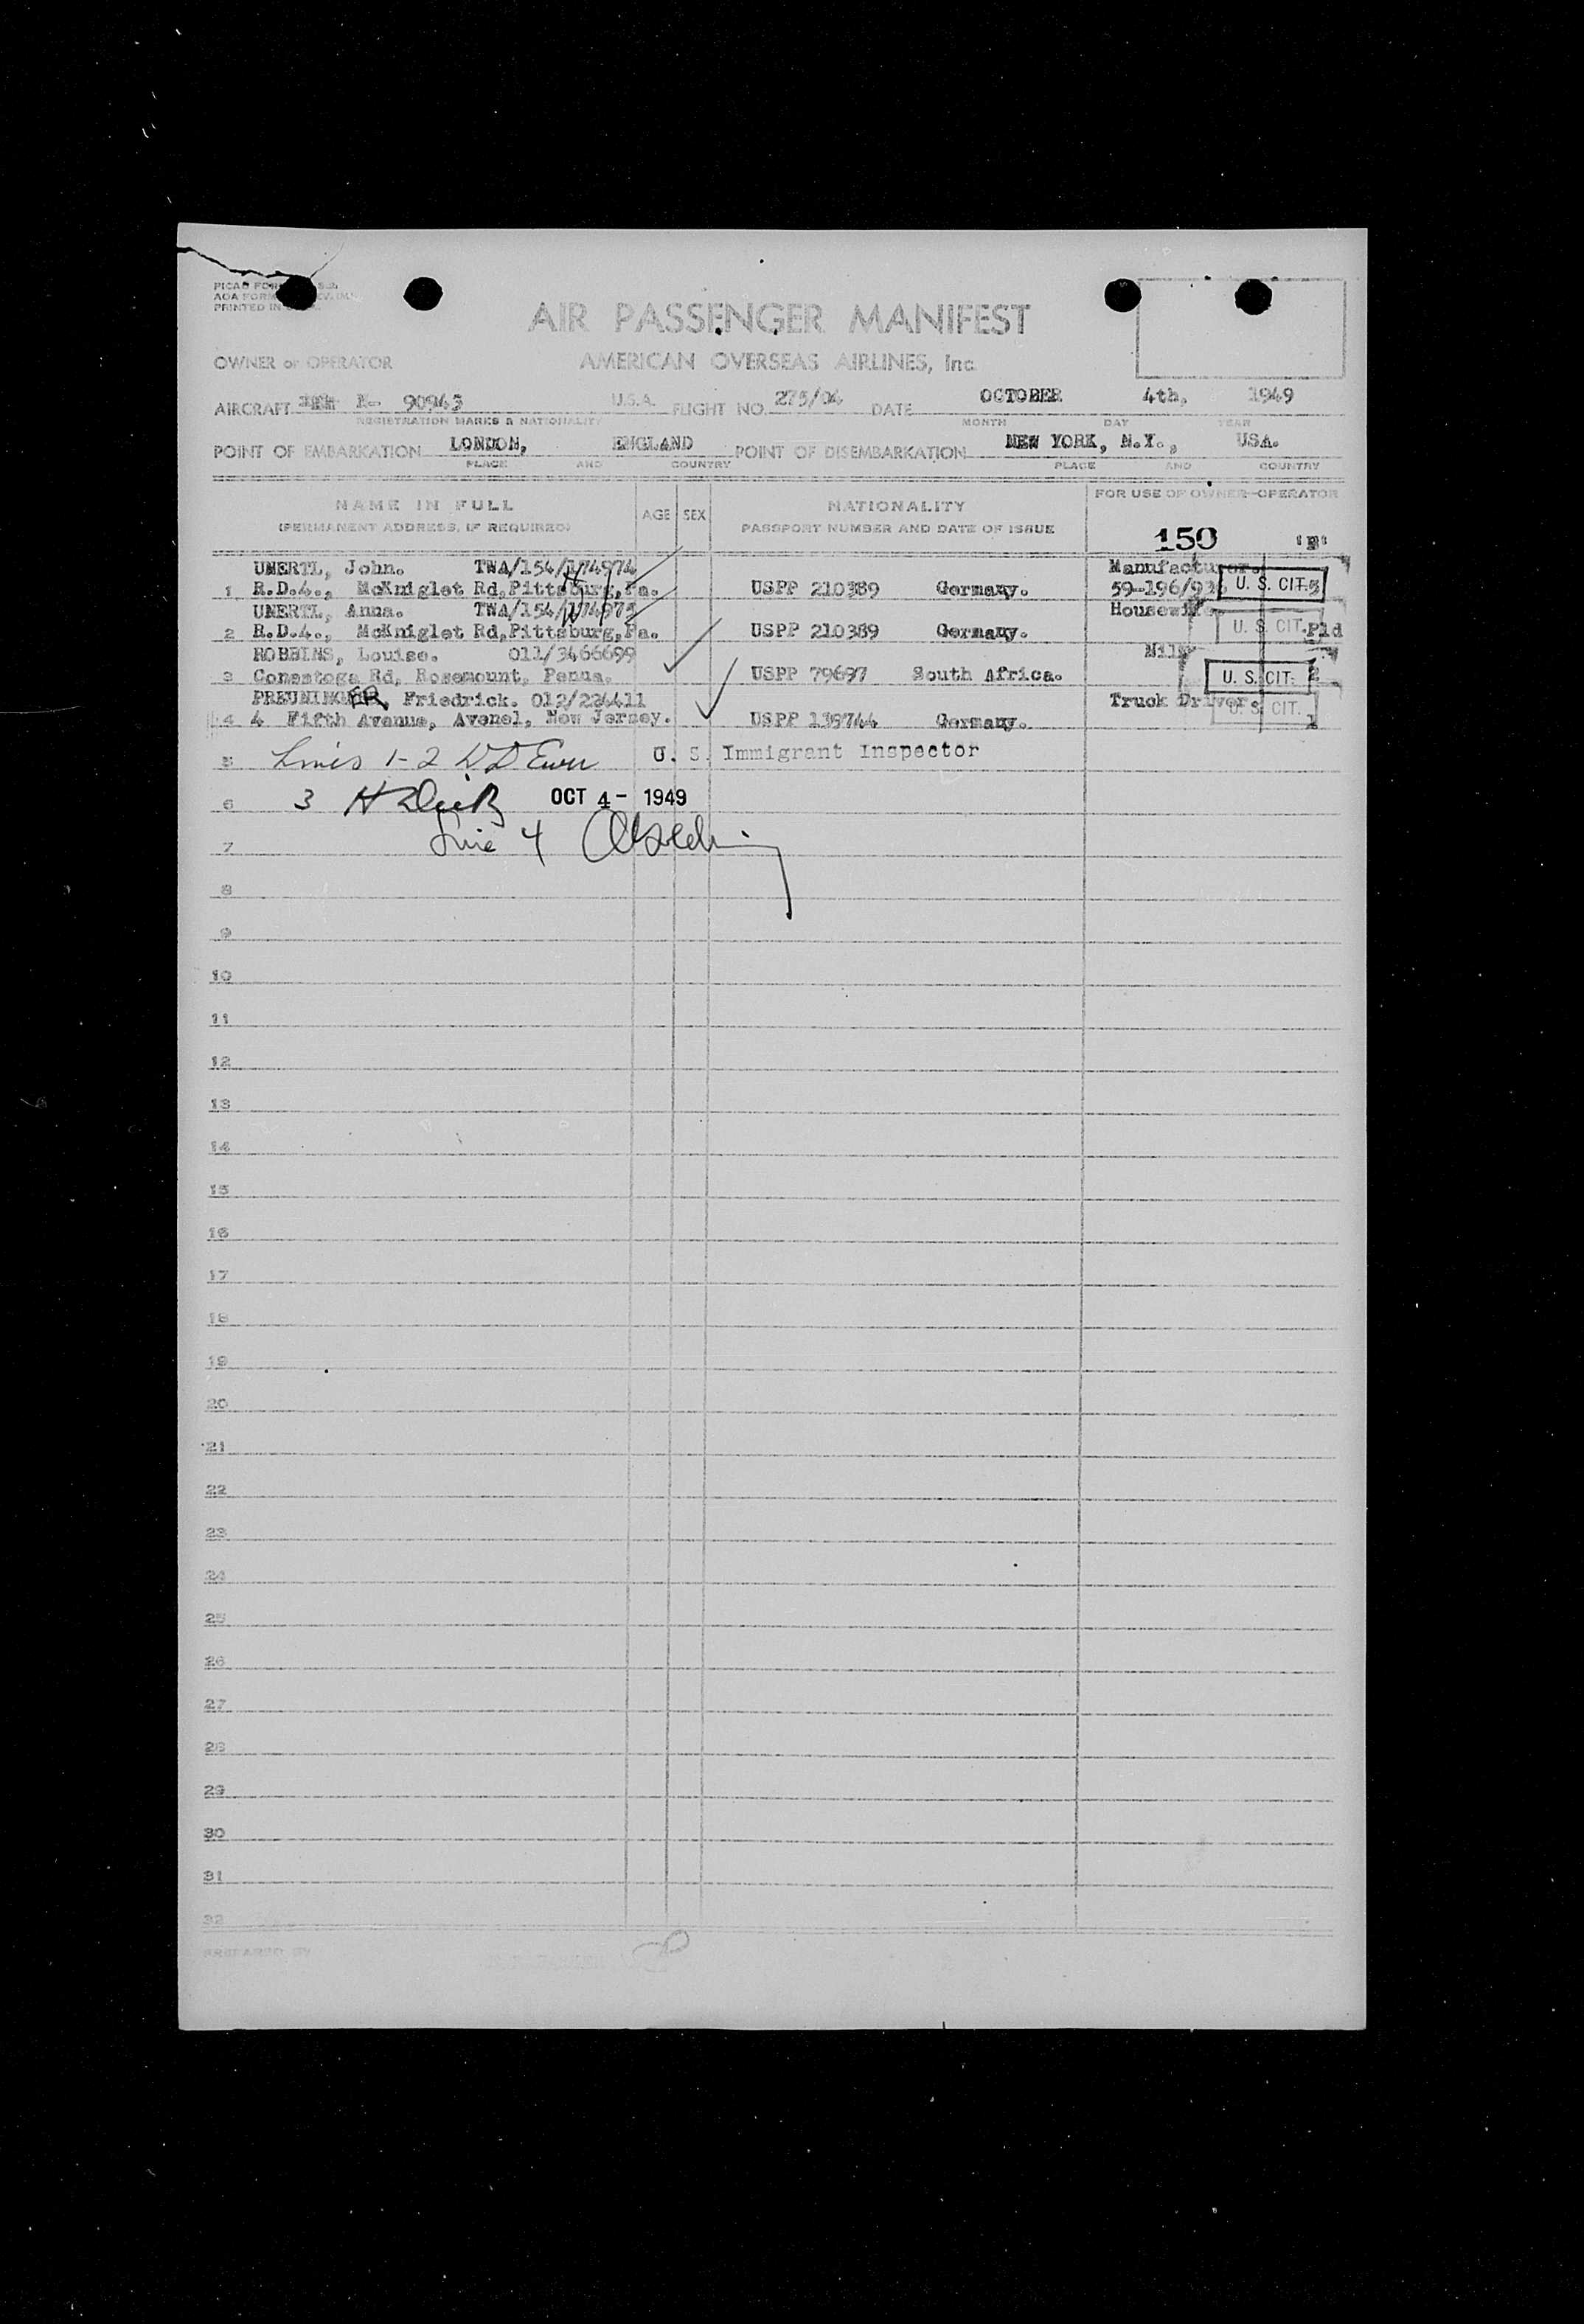 PRINTED IN
AIR PASSENGER MANIFEST
OWNER or OPERATOR AMERICAN OVERSEAS AIRLINES, Inc.
AIRCRAFT N- 90943 U.S.A. FLIGHT NO. 275/04 DATE OCTOBER 4th, 1949
REGISTRATION MARKS & NATIONALITY MONTH DAY YEAR
POINT OF EMBARKATION LONDON, ENGLAND POINT OF DISEMBARKATION NEW YORK, N.Y., USA.
PLACE AND COUNTRY PLACE AND COUNTRY
NAME IN FULL AGE SEX NATIONALITY FOR USE OF OWNER-OPERATOR
(PERMANENT ADDRESS, IF REQUIRED) PASSPORT NUMBER AND DATE OF ISSUE
150
UNERTL, John. TWA/154/174974 Manufacturer.
1 R.D.4., McKniglet Rd,Pittsburg,Pa. USPP 210389 Germany. 59-196/93 U. S. CIT.
UNERTL, Anna. TWA/154/174975 Housewife
2 R.D.4., McKniglet Rd,Pittsburg,Pa. USPP 210389 Germany. U. S. CIT. Pld
ROBBINS, Louise. 011/3466699 Nil
3 Conestoga Rd, Rosemount, Penna. USPP 79697 South Africa. U. S. CIT. 2
PREUNINGER, Friedrick. 012/224411 Truck Driver
4 4 Fifth Avenue, Avenel, New Jersey. USPP 139744 Germany. U. S. CIT. 1
5 Lines 1-2 U. S. Immigrant Inspector
6 3 OCT 4- 1949
7 Line 4
8
9
10
11
12
13
14
15
16
17
18
19
20
21
22
23
24
25
26
27
28
29
30
31
32
PREPARED BY